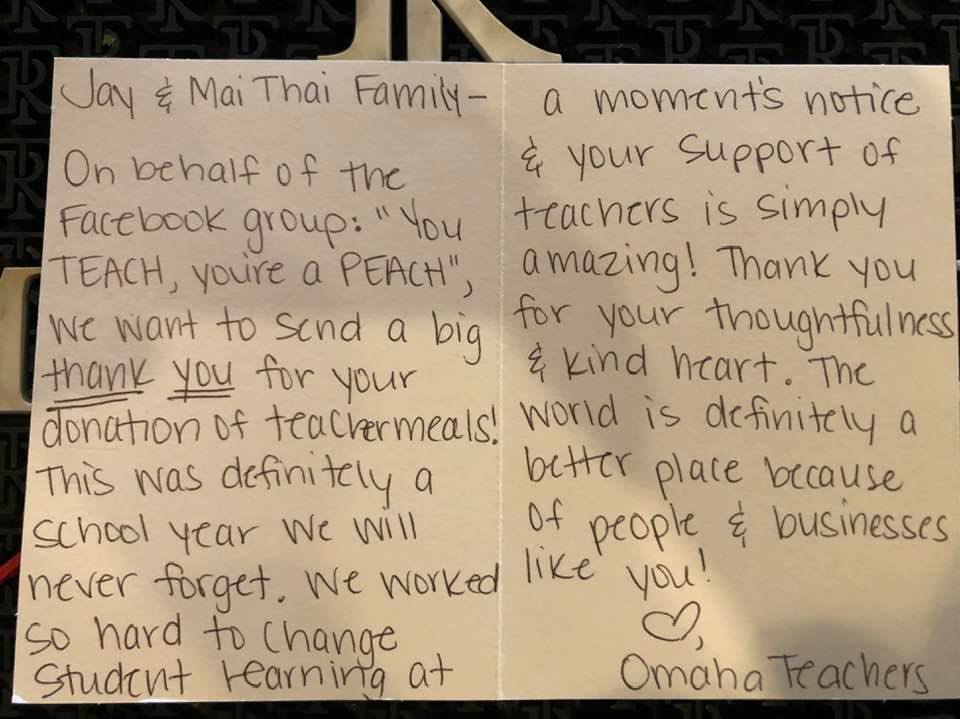 Jay & Mai Thai Family-
On behalf of the
Facebook group: "You
TEACH, you're a PEACH",
we want to send a big
thank you for your
donation of teacher meals!
This was definitely a
school year we will
never forget. We worked
so hard to change
student learning at
a moment's notice
& your support of
teachers is simply
amazing! Thank you
for your thoughtfulness
& kind heart. The
world is definitely a
better place because
of people & businesses
like you!
♡,
Omaha Teachers